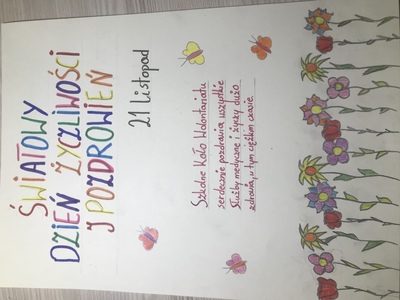 ŚWIATOWY
DZIEŃ ŻYCZLIWOŚCI
I POZDROWIEŃ
21 listopad
Szkolne Koło Wolontariatu
serdecznie pozdrawia wszystkie
służby medyczne i życzy dużo
zdrowia, w tym ciężkim czasie.